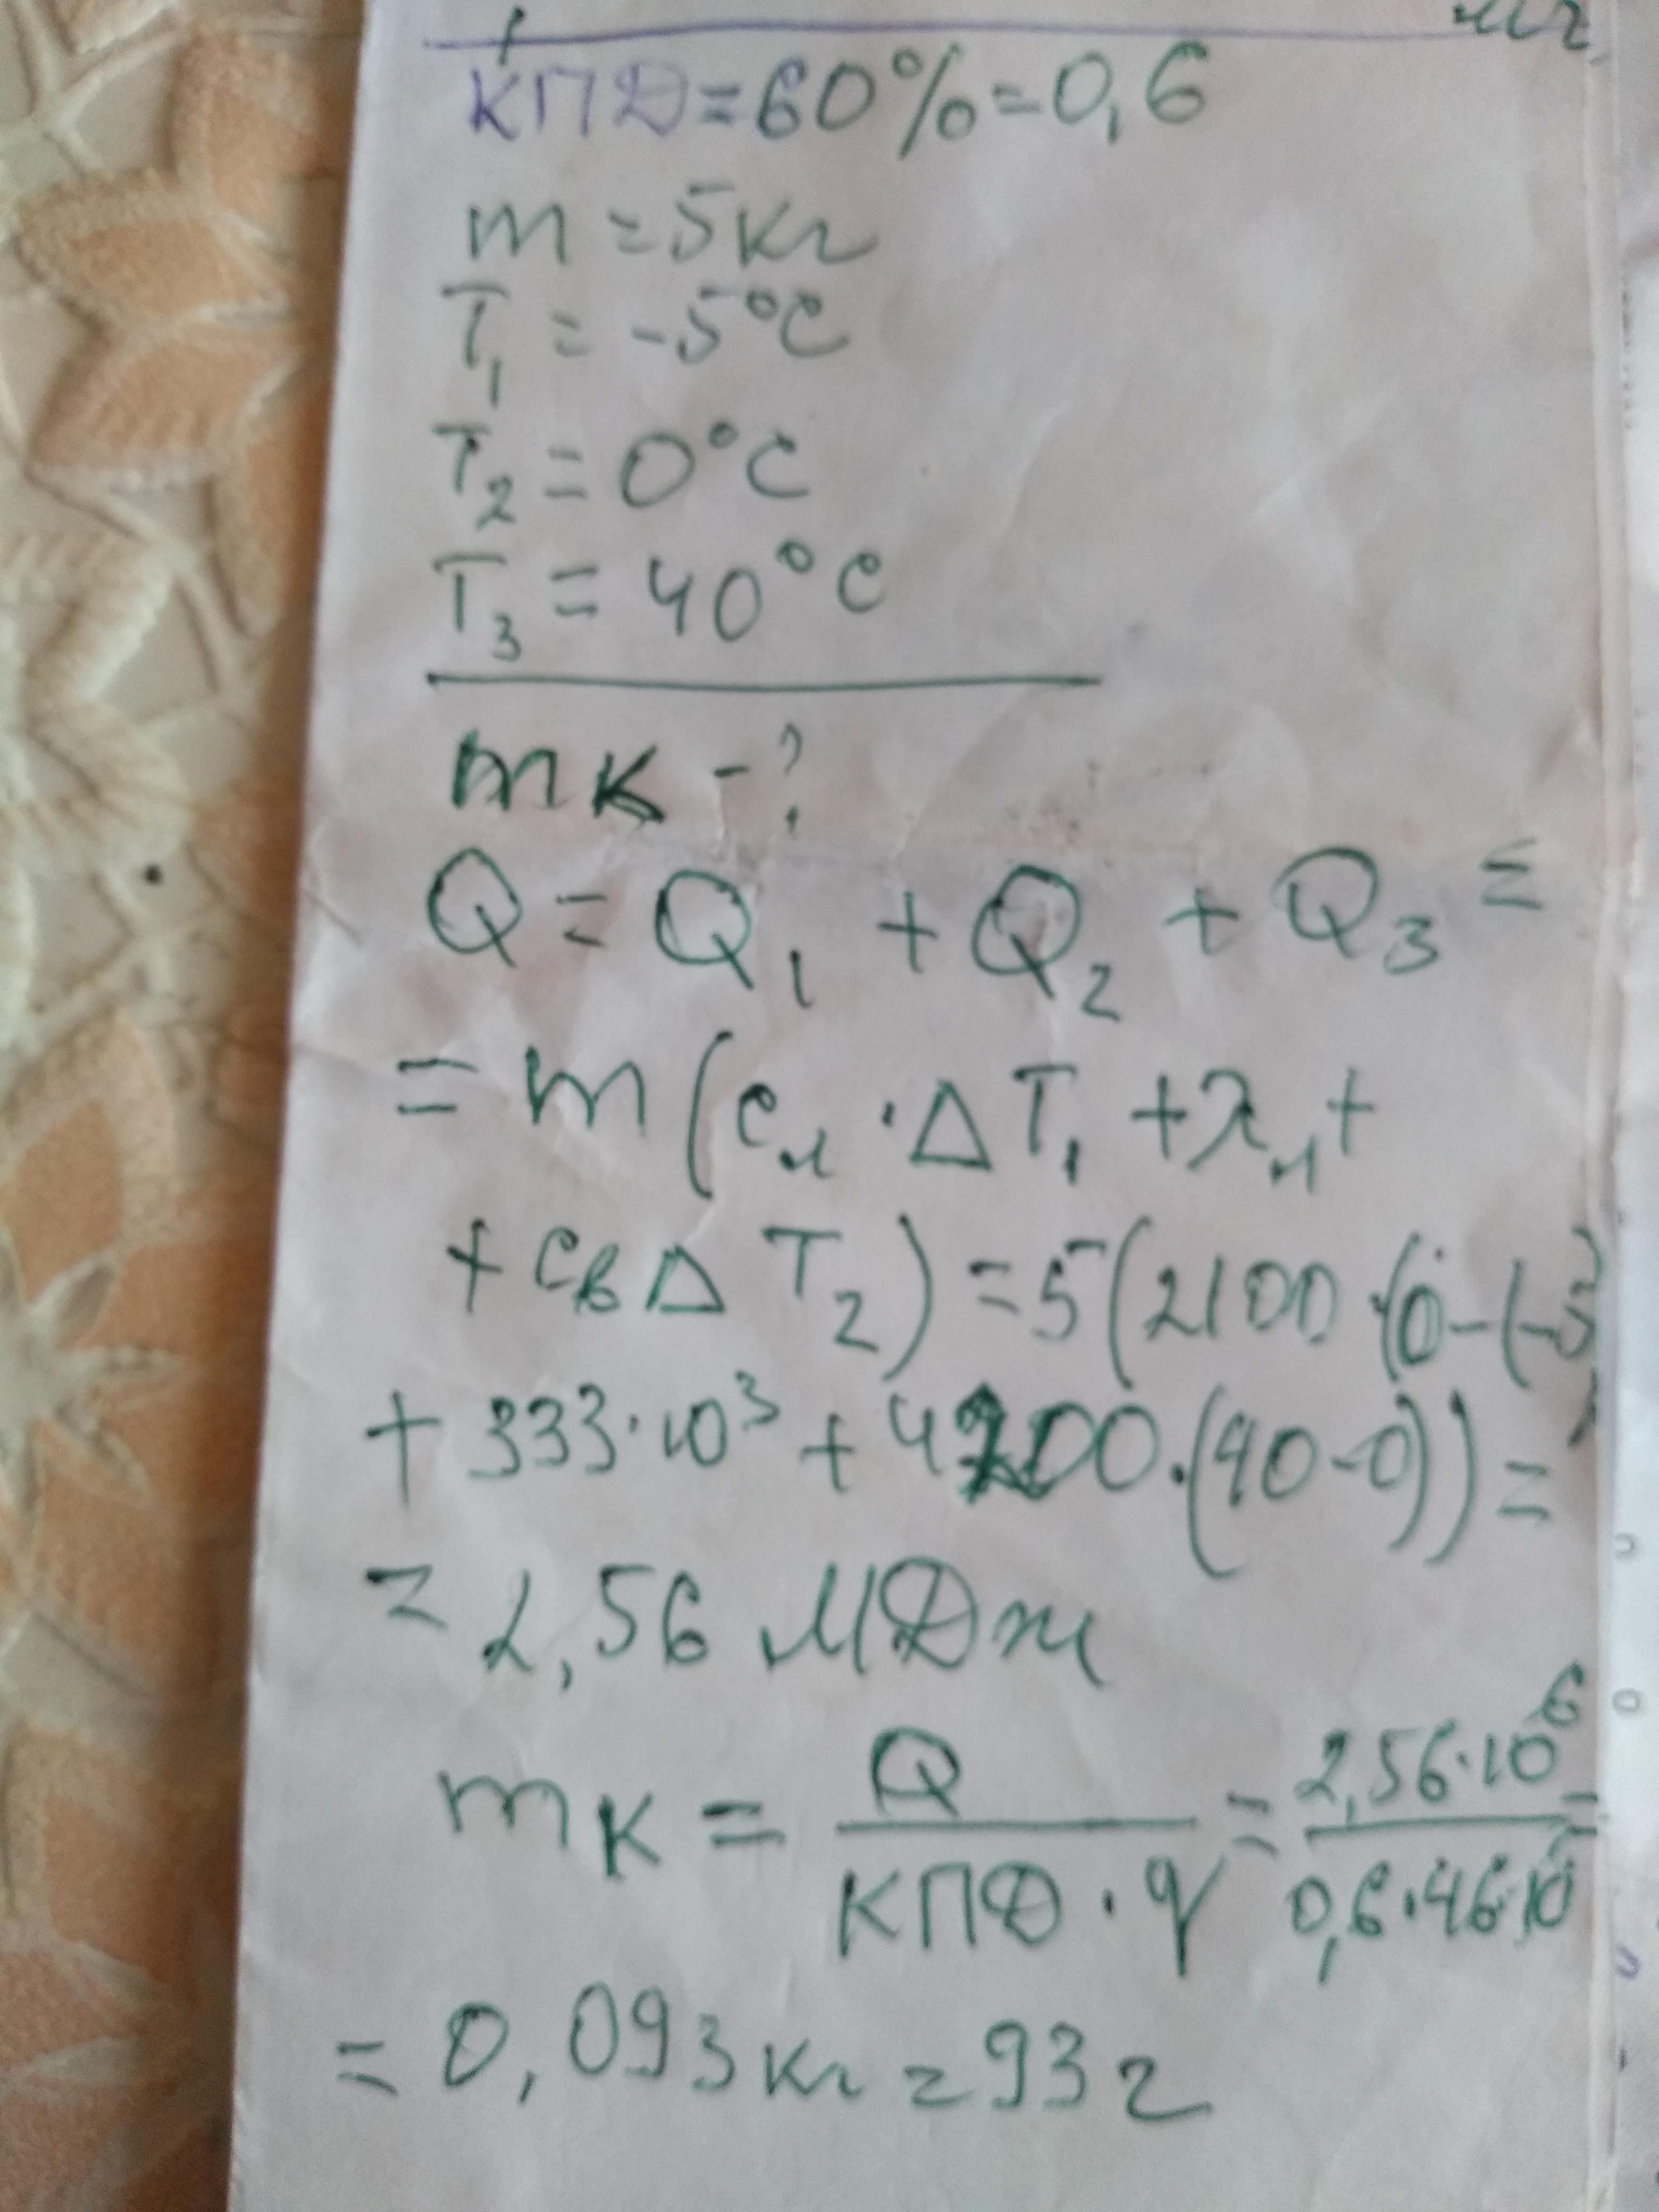 КПД=60%=0,6
m=5кг
T₁ = -5°C
T₂ = 0°C
T₃ = 40°C
mк -?
Q = Q₁ + Q₂ + Q₃ =
= m(cл · ΔT₁ + λл +
+ cвΔT₂) = 5(2100·(0-(-5)
+ 333·10³ + 4200·(40-0)) =
= 2,56 МДж
mк = Q / КПД · q = 2,56·10⁶ / 0,6·46·10⁶ =
= 0,093 кг = 93 г